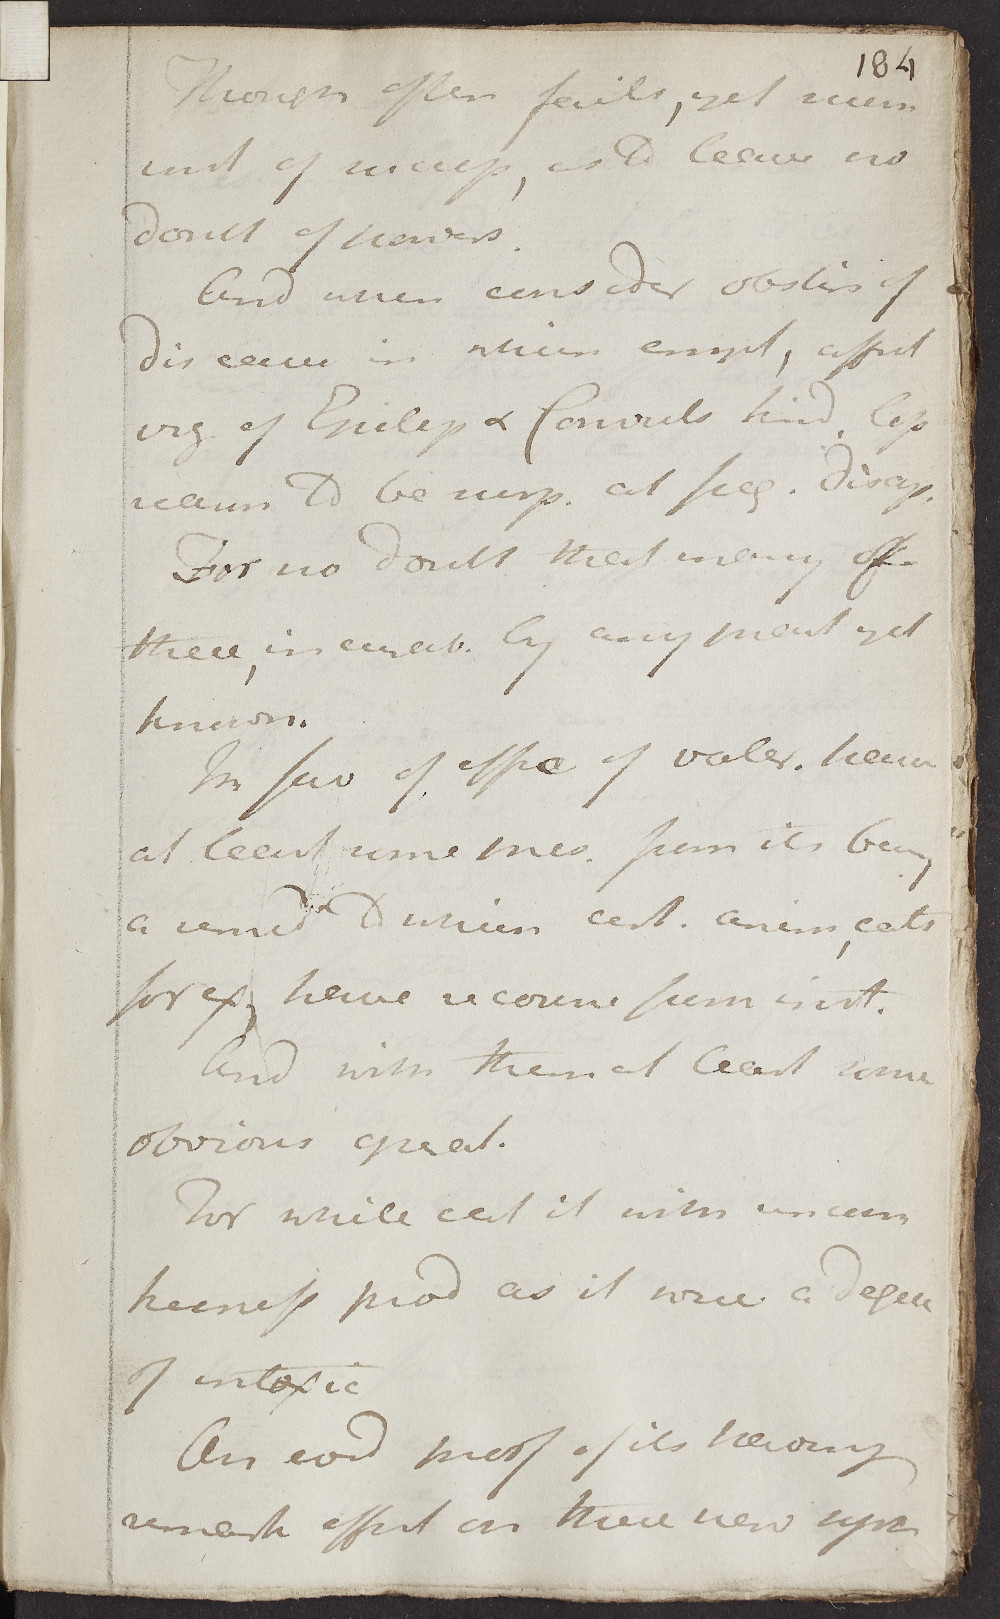 184
Though often fails, yet num
inst of success, as to leave no
doubt of powers.
And when consider obstin of
disease in which empl, affect
org of Epilep & Convuls kind, less
reason to be surp. at freq. disap.
For no doubt that many of
these, incurab. by any pract yet
known.
In fav of effic of valer. have
at least some pres. from its being
a remed to which cert. anim, cats
for ex, have recourse from inst.
And with them at least some
obvious operat.
For while eat it with uncom
keenness prod as it were a degree
of intoxic
An evid proof of its having
remark effect on these nerv syst